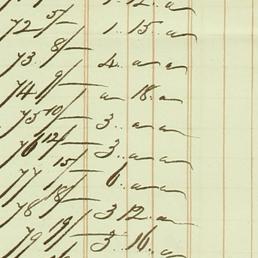 72 5/- 1.. 15.. a
73. 8/- 4.. a a
74 9/- a 18.. a
75 10/- 3.. a a
76 12/- 3.. a a
77 15/- 6.. a a
78 18/- 3 12.. a
79 19/- 3.. 16.. a